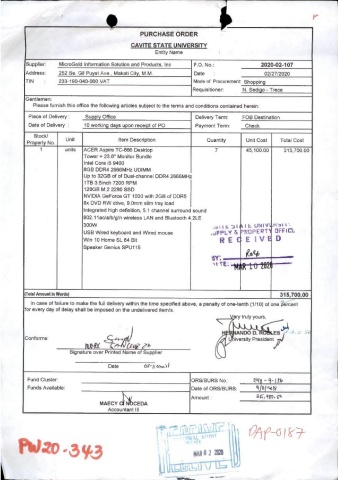 PURCHASE ORDER
CAVITE STATE UNIVERSITY
Entity Name
Supplier: MicroGold Information Solution and Products, Inc P.O. No.: 2020-02-107
Address: 252 Se. Gil Puyat Ave., Makati City, M.M. Date 02/27/2020
TIN : 233-190-040-000 VAT Mode of Procurement Shopping
Requisitioner: N. Sedigo - Trece
Gentlemen:
Please furnish this office the following articles subject to the terms and conditions contained herein:
Place of Delivery : Supply Office Delivery Term: FOB Destination
Date of Delivery : 10 working days upon receipt of PO Payment Term: Check
Block/ Property No. Unit Item Description Quantity Unit Cost Total Cost
1 units ACER Aspire TC-866 Desktop 7 45,100.00 315,700.00
Tower + 23.0" Monitor Bundle
Intel Core i5 9400
8GB DDR4 2666MHz UDIMM
Up to 32GB of of Dual-channel DDR4 2666MHz
1TB 3.5inch 7200 RPM
128GB M.2 2280 SSD
NVIDIA GeForce GT 1030 with 2GB of DDR5
8x DVD RW drive, 9.0mm slim tray load
Integrated high definition, 5.1 channel surround sound
802.11ac/a/b/g/n wireless LAN and Bluetooth 4.2LE
300W
USB Wired keyboard and Wired mouse
Win 10 Home SL 64 Bit
Speaker Genius SPU115
STATE UNIVERSITY
SUPPLY & PROPERTY OFFICE
RECEIVED
BY:
DATE: MAR 10 2020
(Total Amount in Words) 315,700.00
In case of failure to make the full delivery within the time specified above, a penalty of one-tenth (1/10) of one percent
for every day of delay shall be imposed on the undelivered items.
Very truly yours,
Conforme:
HERNANDO D. ROBLES
University President
Signature over Printed Name of Supplier
Date
Fund Cluster: ORS/BURS No.:
Funds Available: Date of ORS/BURS:
Amount
MAECY C. NOCEDA
Accountant III
PW20-343
MAR 02 2020
DAP-0187